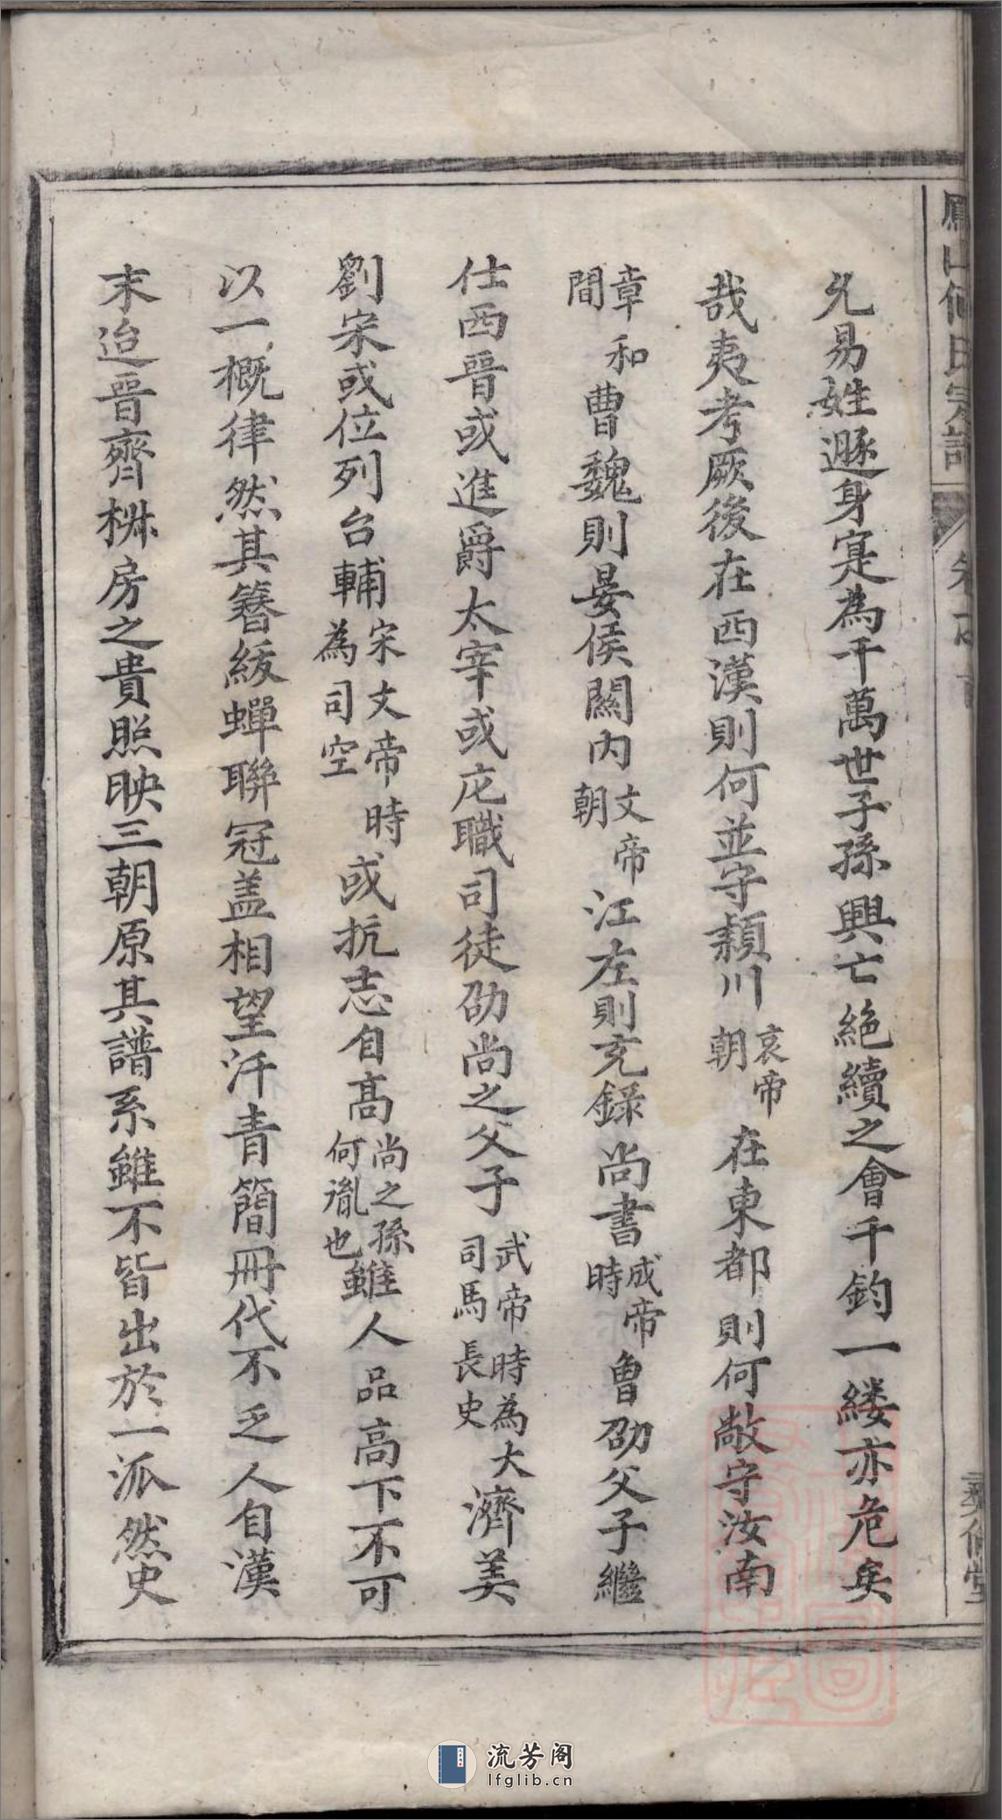 允易姓遯身寔為千萬世子孫興亡絶續之會千鈞一縷亦危矣
哉夷考厥後在西漢則何並守潁川哀帝朝在東都則何敞守汝南
章和間曹魏則晏侯關內文帝朝江左則充録尚書成帝時曾劭父子繼
仕西晉或進爵太宰或庀職司徒劭尚之父子武帝時為大司馬長史濟美
劉宋或位列台輔宋文帝時為司空或抗志自高尚之孫何胤也雖人品高下不可
以一概律然其簪緩蟬聯冠盖相望汗青簡冊代不乏人自漢
末迨晉齊椒房之貴照映三朝原其譜系雖不皆出於一派然史
鳳山何氏宗譜
彝倫堂
流芳阁
lfglib.cn